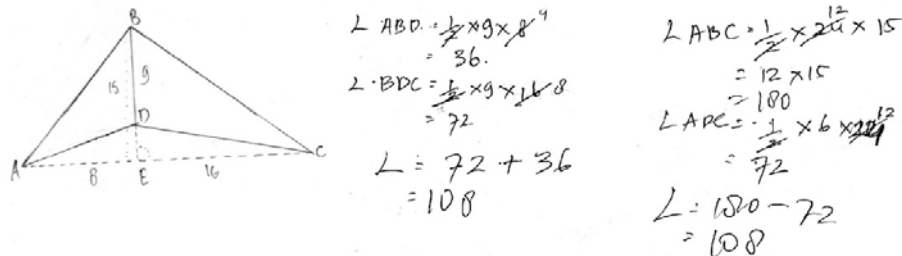 B
15 9
D
A 8 E 16 C
L ABD = 1/2 × 9 × 8 4
= 36.
L. BDC = 1/2 × 9 × 16 8
= 72
L = 72 + 36
= 108
L ABC = 1/2 × 24 12 × 15
= 12 × 15
= 180
L ADC = 1/2 × 6 × 24 12
= 72
L = 180 - 72
= 108